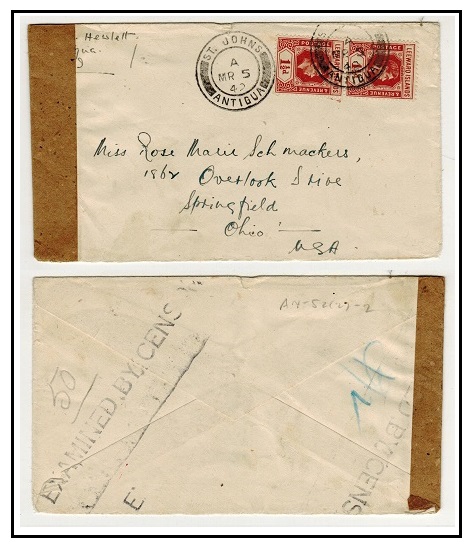 Hewlett
ST. JOHNS
A
MR 5
42
ANTIGUA
POSTAGE
1½d
& REVENUE
POSTAGE
LEEWARD ISLANDS
& REVENUE
ANTIGUA
Miss Rose Marie Schmackers,
1862 Overlook Drive
Springfield
Ohio
USA.
50
EXAMINED BY CENS
E
D BY CENS